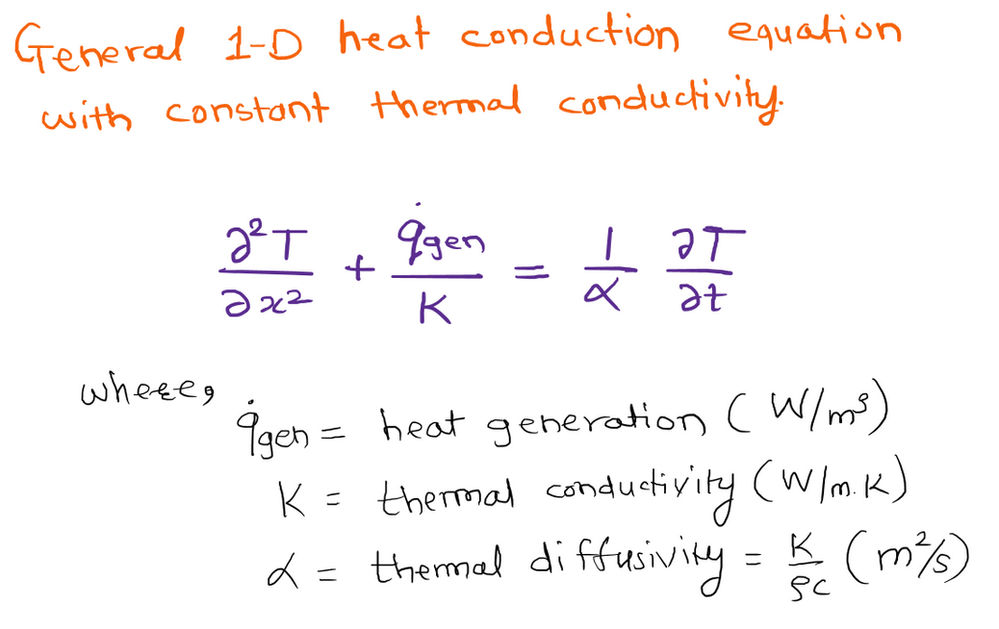 General 1-D heat conduction equation
with constant thermal conductivity.
∂²T/∂x² + q̇gen/K = 1/α ∂T/∂t
where,
q̇gen = heat generation (W/m³)
K = thermal conductivity (W/m.K)
α = thermal diffusivity = K/ρc (m²/s)